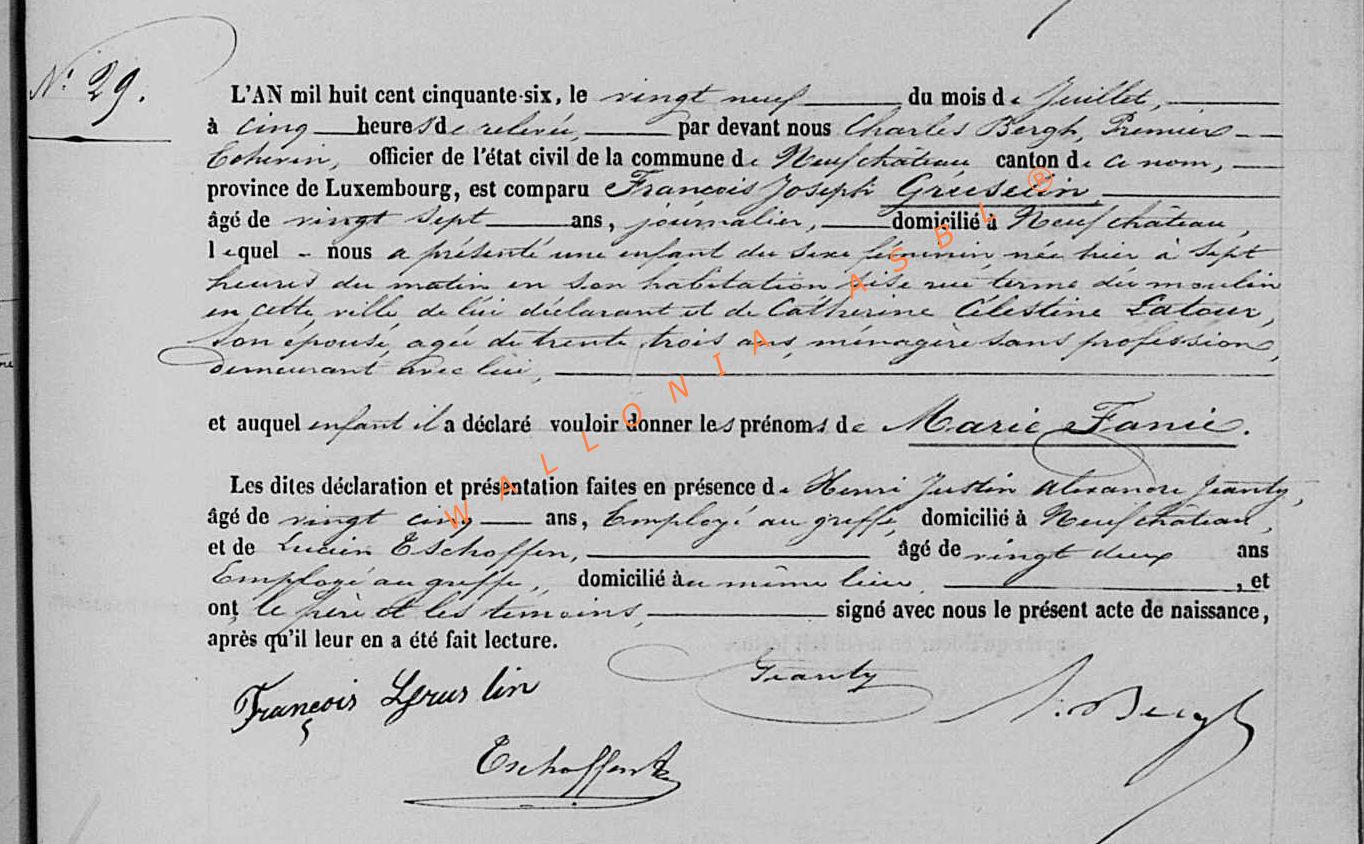 N° 29.
L'AN mil huit cent cinquante-six, le vingt neuf du mois de Juillet,
à cinq heures de relevée, par devant nous Charles Bergh, Premier
Echevin, officier de l'état civil de la commune de Neufchâteau canton de ce nom,
province de Luxembourg, est comparu François Joseph Gruselin
âgé de vingt sept ans, journalier, domicilié à Neufchâteau,
lequel nous a présenté une enfant du sexe féminin née hier à sept
heures du matin en son habitation sise rue terme du moulin
en cette ville de lui déclarant et de Catherine Célestine Latour,
son épouse, agée de trente trois ans, ménagère sans profession,
demeurant avec lui,
et auquel enfant il a déclaré vouloir donner les prénoms de Marie Fanie.
Les dites déclaration et présentation faites en présence de Henri Justin Alexandre Jeanty,
âgé de vingt cinq ans, Employé au greffe, domicilié à Neufchâteau,
et de Lucien Eschoffen, âgé de vingt deux ans
Employé au greffe, domicilié au même lieu, et
ont le père et les témoins, signé avec nous le présent acte de naissance,
après qu'il leur en a été fait lecture.
François Gruslin
Jeanty
Bergh
Eschoffen
WALLONIA ASBL ®